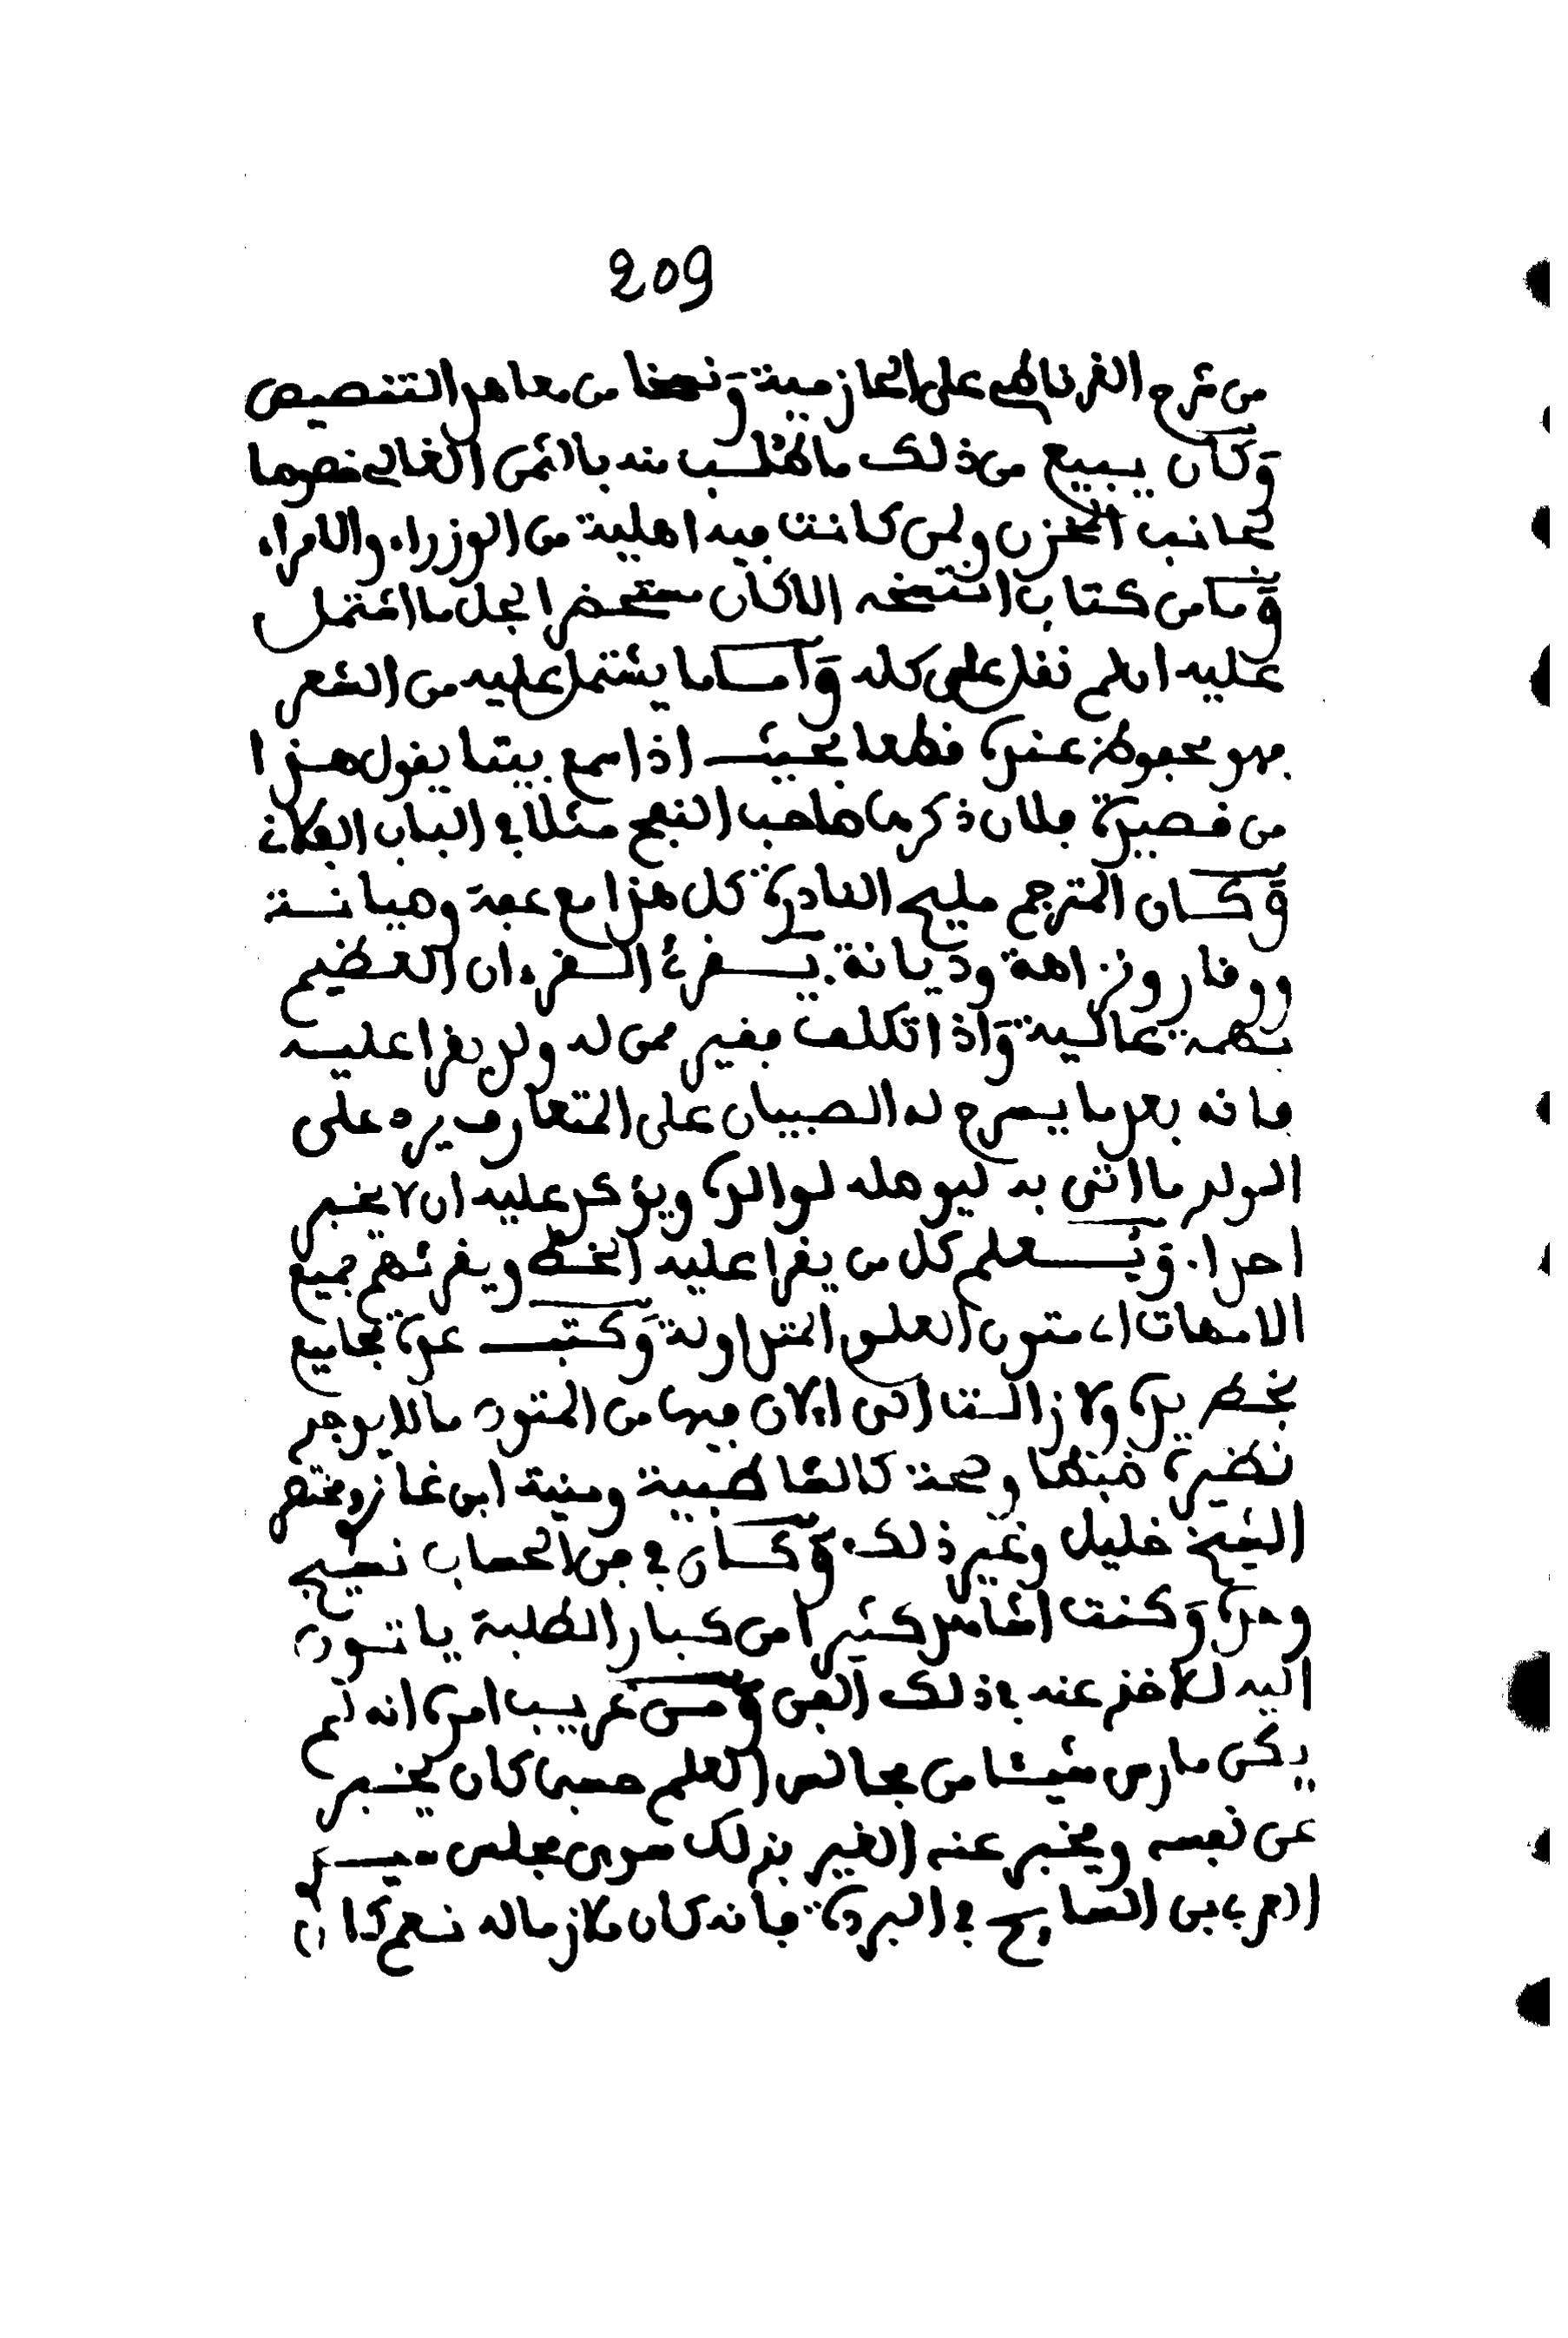 209
من شرح الغرناطي على الحازمية ونسخا من معاهد التنصيص
وكان يبيع من ذلك ما طلب منه بالثمن الغالي خصوصا
لجانب المخزن ولمن كانت فيه اهلية من الوزراء والامراء
وما من كتاب انتسخه الا كان مستحضرا لجل ما اشتمل
عليه ان لم نقل على كله واما ما يشتمل عليه من الشعر
فهو محفوظ عنده قطعا بحيث اذا سمع بيتا يقول هذا
من قصيدة فلان ذكرها صاحب النفح مثلا في الباب الفلاني
وكان المترجم مليح النادرة كل هذا مع عفة وصيانة
ووقار ونزاهة وديانة. يقرئ القرءان العظيم
بهمة عالية واذا تكلف فقير ممن له ولد يقرا عليه
فانه بعد ما يسرح له الصبيان على المتعارف يرد على
الولد ما اتى به ليوصله لوالده ويؤكد عليه ان لا يخبر
احدا. ويعلم كل من يقرا عليه الخط ويقرئهم جميع
الامهات اي متون العلوم المتداولة وكتب عدة مجاميع
بخط يده ولا زالت الى الان فيها من المتون ما لا يوجد
نظيره ضبطا وصحة كالشاطبية ومنية ابن غازي ومختصر
الشيخ خليل وغير ذلك. وكان في فن الحساب نسيج
وحده وكنت اشاهد كثيرا من كبار الطلبة ياتون
اليه للاخذ عنه في ذلك الفن ومن غريب امره انه لم
يكن مارس شيئا من مجالس العلم حسبما كان يخبر
عن نفسه ويخبر عنه الغير بذلك سوى مجلس سيدي
العربي بن السايح في البردة فانه كان ملازما له نعم كان